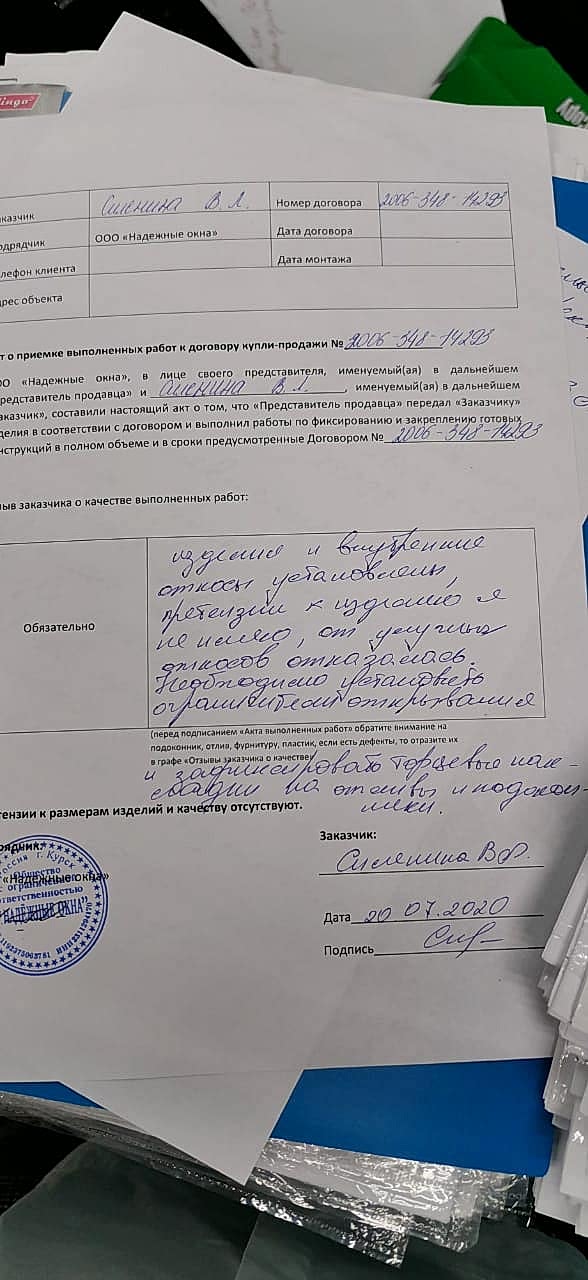 аказчик
В. Л.
Номер договора
2006-348-14293
одрядчик
ООО «Надежные окна»
Дата договора
лефон клиента
Дата монтажа
рес объекта
т о приемке выполненных работ к договору купли-продажи № 2006-348-14293
ОО «Надежные окна», в лице своего представителя, именуемый(ая) в дальнейшем
редставитель продавца» и В. Л. , именуемый(ая) в дальнейшем
аказчик», составили настоящий акт о том, что «Представитель продавца» передал «Заказчику»
делия в соответствии с договором и выполнил работы по фиксированию и закреплению готовых
нструкций в полном объеме и в сроки предусмотренные Договором № 2006-348-14293
ыв заказчика о качестве выполненных работ:
Обязательно
изделия и внутренние
откосы установлены,
претензии к изделию я
не имею, от
откосов отказалась.
Необходимо установить
ограничители открывания
(перед подписанием «Акта выполненных работ» обратите внимание на
подоконник, отлив, фурнитуру, пластик, если есть дефекты, то отразите их
в графе «Отзывы заказчика о качестве)
и зафиксировать торцевые нак-
ладки на отливы и подокон-
ники.
тензии к размерам изделий и качеству отсутствуют.
рядчик:
«Надежные окна»
оссия г. Курск
Общество
с ограниченной
ответственностью
"НАДЕЖНЫЕ ОКНА"
Заказчик:
Дата 20 07.2020
Подпись